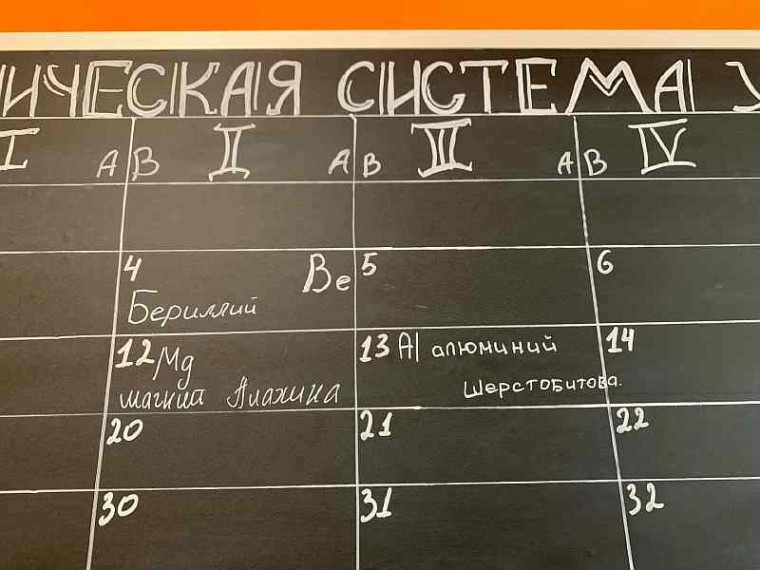 ИЧЕСКАЯ СИСТЕМА
I A B II A B III A B IV
4 Be 5 6
Бериллий
12 Mg 13 Al алюминий 14
магний Шерстобитова.
20 21 22
30 31 32